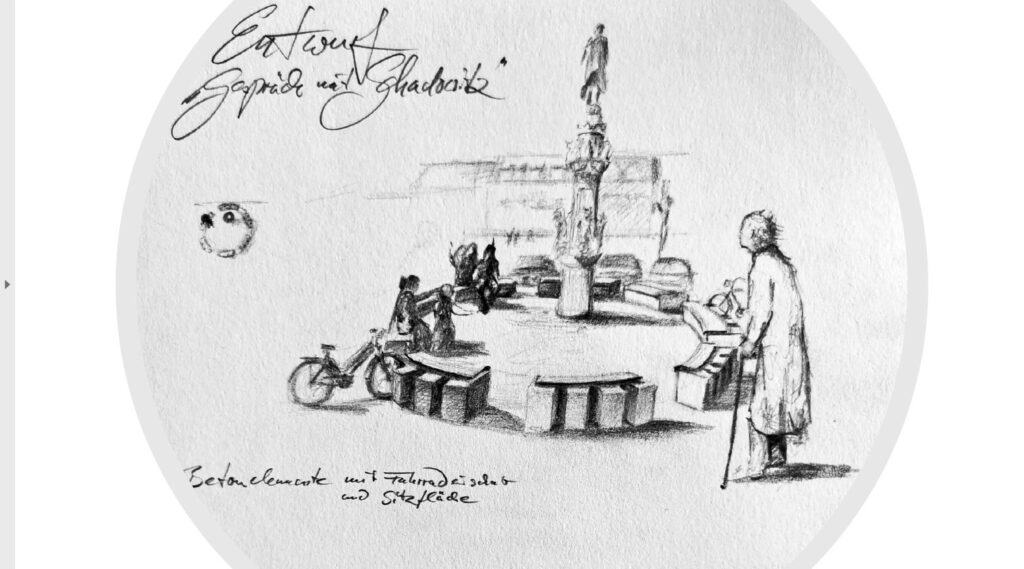 Entwurf
„Gespräch mit
Betonelemente mit Fahrradeinschub
und Sitzfläche